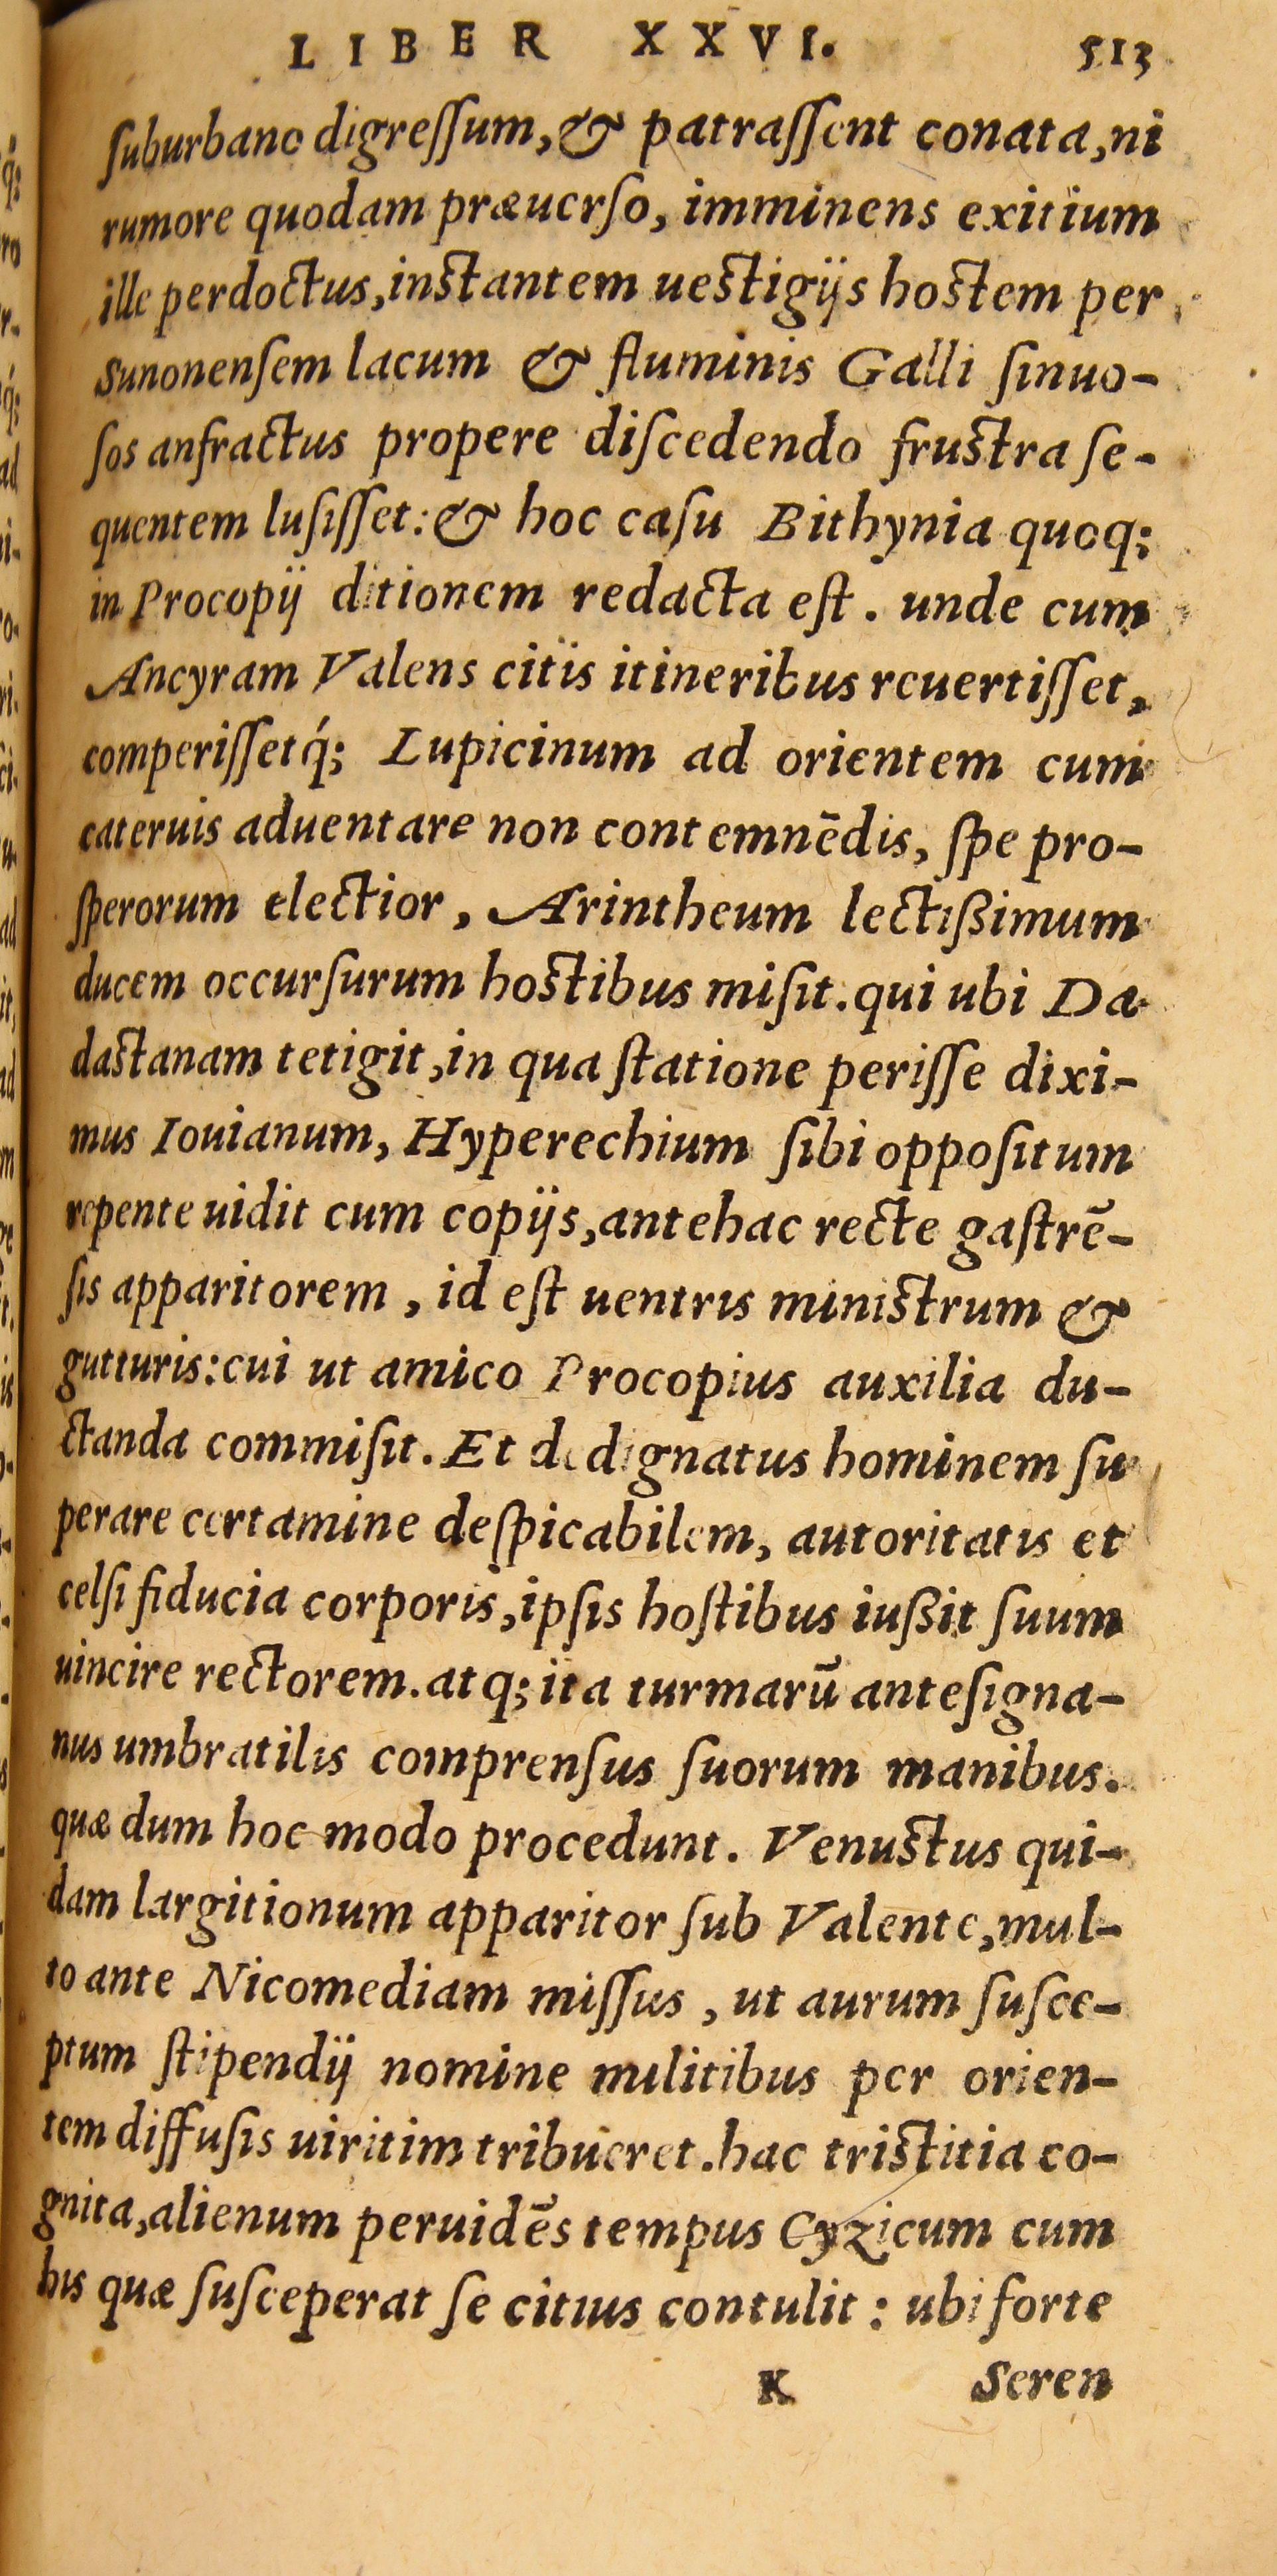 LIBER XXVI. 513
ſuburbano digreſſum, & patraſſent conata, ni
rumore quodam præuerſo, imminens exitium
ille perdoctus, inſtantem ueſtigijs hoſtem per
Sunonenſem lacum & fluminis Galli ſinuo-
ſos anfractus propere diſcedendo fruſtra ſe-
quentem luſiſſet: & hoc caſu Bithynia quoq;
in Procopij ditionem redacta eſt. unde cum
Ancyram Valens citis itineribus reuertiſſet,
comperiſſetq́; Lupicinum ad orientem cum
cateruis aduentare non contemnēdis, ſpe pro-
ſperorum electior, Arintheum lectißimum
ducem occurſurum hoſtibus miſit. qui ubi Da
daſtanam tetigit, in qua ſtatione periſſe dixi-
mus Iouianum, Hyperechium ſibi oppoſitum
repente uidit cum copijs, antehac recte gaſtrē-
ſis apparitorem, id eſt uentris miniſtrum &
gutturis: cui ut amico Procopius auxilia du-
ctanda commiſit. Et dedignatus hominem ſu
perare certamine deſpicabilem, autoritatis et
celſi fiducia corporis, ipſis hoſtibus iußit ſuum
uincire rectorem. atq; ita turmarū anteſigna-
nus umbratilis comprenſus ſuorum manibus.
quæ dum hoc modo procedunt. Venuſtus qui-
dam largitionum apparitor ſub Valente, mul-
to ante Nicomediam miſſus, ut aurum ſuſce-
ptum ſtipendij nomine militibus per orien-
tem diffuſis uiritim tribueret. hac triſtitia co-
gnita, alienum peruidēs tempus Cyzicum cum
his quæ ſuſceperat ſe citius contulit: ubi forte
K Seren